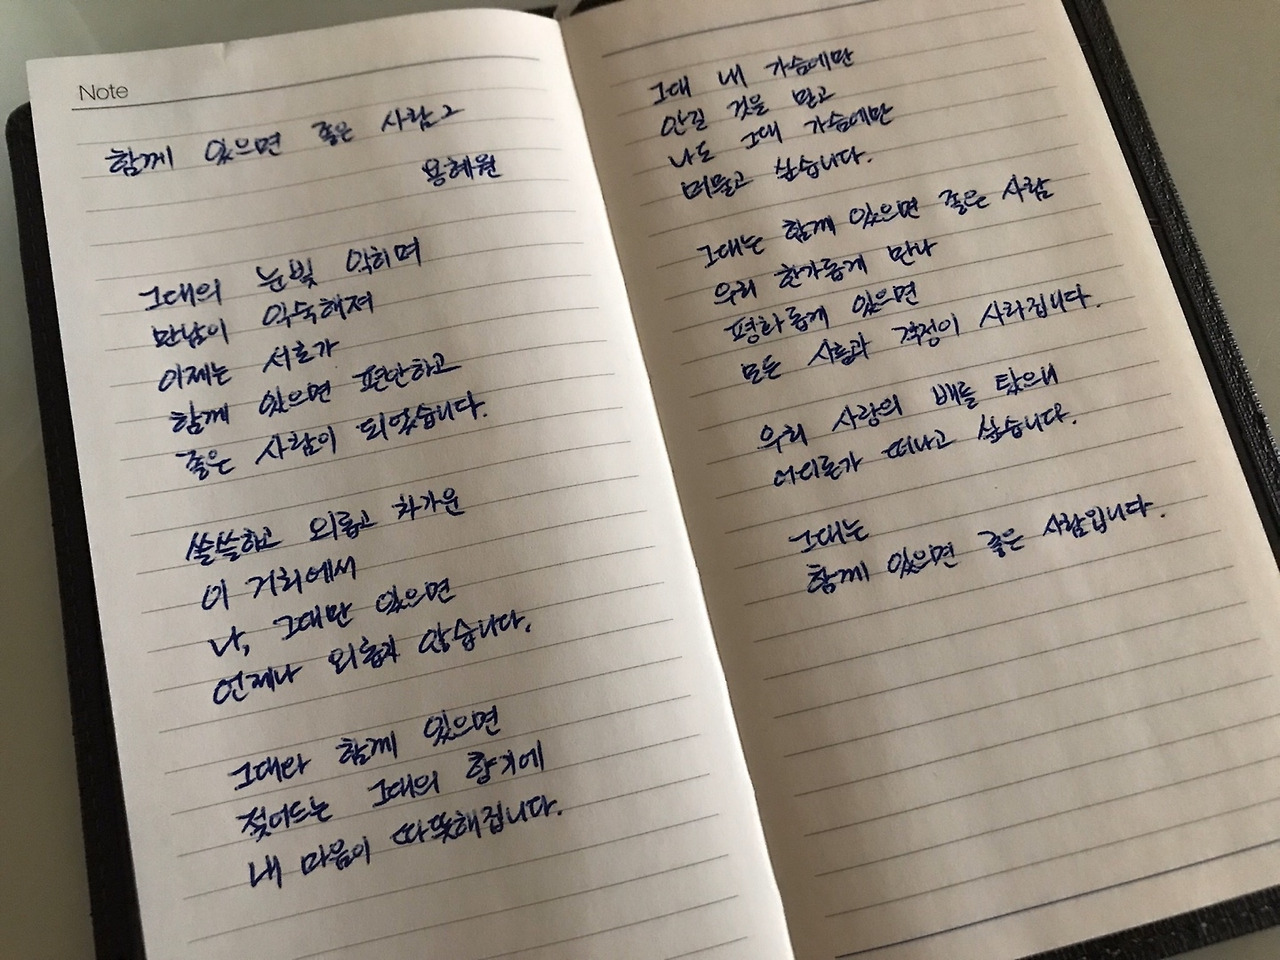 Note
함께 있으면 좋은 사람2
용혜원
그대의 눈빛 익히며
만남이 익숙해져
이제는 서로가
함께 있으면 편안하고
좋은 사람이 되었습니다.
쓸쓸하고 외롭고 차가운
이 거리에서
나, 그대만 있으면
언제나 외롭지 않습니다.
그대와 함께 있으면
젖어드는 그대의 향기에
내 마음이 따뜻해집니다.
그대 내 가슴에만
안길 것을 믿고
나도 그대 가슴에만
머물고 싶습니다.
그대는 함께 있으면 좋은 사람
우리 한가롭게 만나
평화롭게 있으면
모든 시름과 걱정이 사라집니다.
우리 사랑의 배를 탔으니
어디론가 떠나고 싶습니다.
그대는
함께 있으면 좋은 사람입니다.